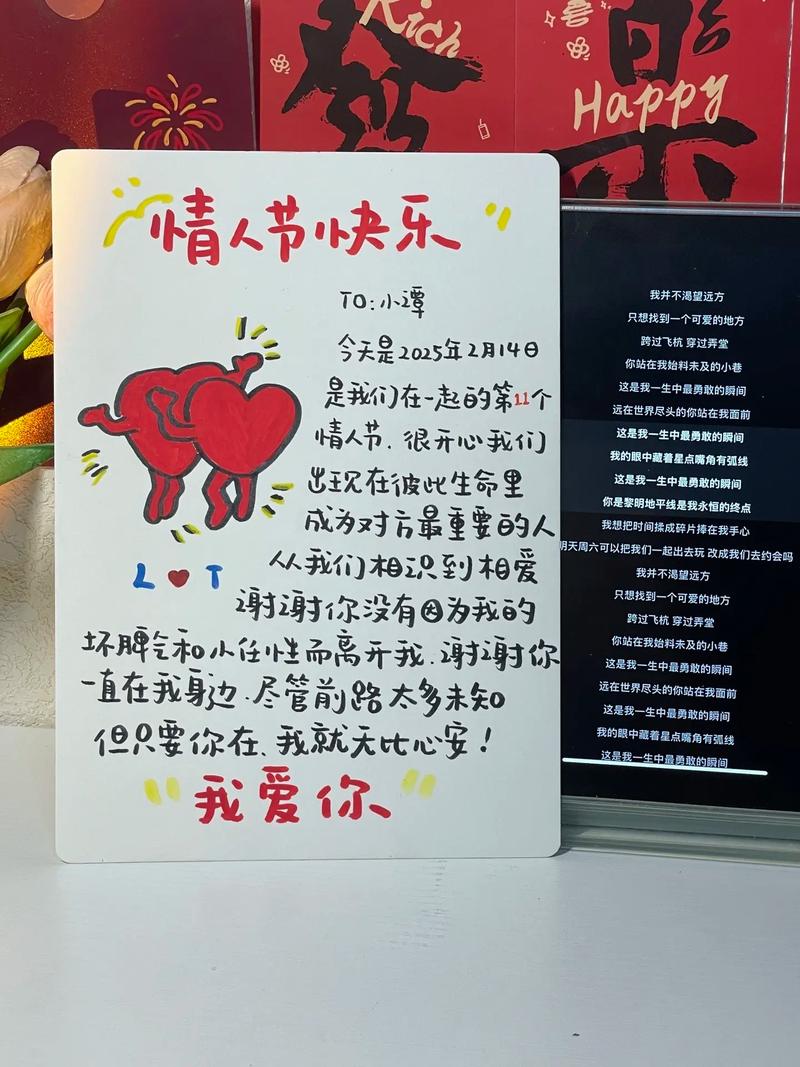 Rich
發
Happy
樂
情人节快乐
TO:小谭
今天是2025年2月14日
是我们在一起的第11个
情人节、很开心我们
出现在彼此生命里
成为对方最重要的人
从我们相识到相爱
谢谢你没有因为我的
坏脾气和小任性而离开我、谢谢你
一直在我身边、尽管前路太多未知
但只要你在、我就无比心安！
L T
我爱你
我并不渴望远方
只想找到一个可爱的地方
跨过飞杭 穿过弄堂
你站在我始料未及的小巷
这是我一生中最勇敢的瞬间
远在世界尽头的你站在我面前
这是我一生中最勇敢的瞬间
我的眼中藏着星点嘴角有弧线
这是我一生中最勇敢的瞬间
你是黎明地平线是我永恒的终点
我想把时间揉成碎片捧在我手心
明天周六可以把我们一起出去玩 改成我们去约会吗
我并不渴望远方
只想找到一个可爱的地方
跨过飞杭 穿过弄堂
你站在我始料未及的小巷
这是我一生中最勇敢的瞬间
远在世界尽头的你站在我面前
这是我一生中最勇敢的瞬间
我的眼中藏着星点嘴角有弧线
这是我一生中最勇敢的瞬间